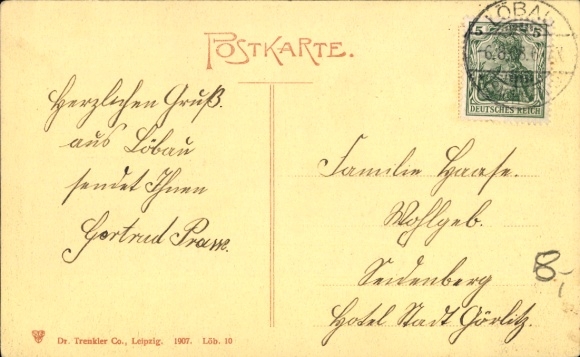 POSTKARTE.
LÖBAU
5 5
DEUTSCHES REICH
Herzlichen Gruß.
aus Löbau
sendet Ihnen
Gertrud
Familie Haase.
Wohlgeb.
Seidenberg
Hotel Stadt Görlitz.
8,-
Dr. Trenkler Co., Leipzig. 1907. Löb. 10